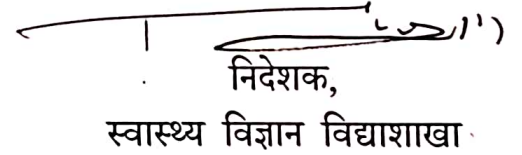 निदेशक,
स्वास्थ्य विज्ञान विद्याशाखा